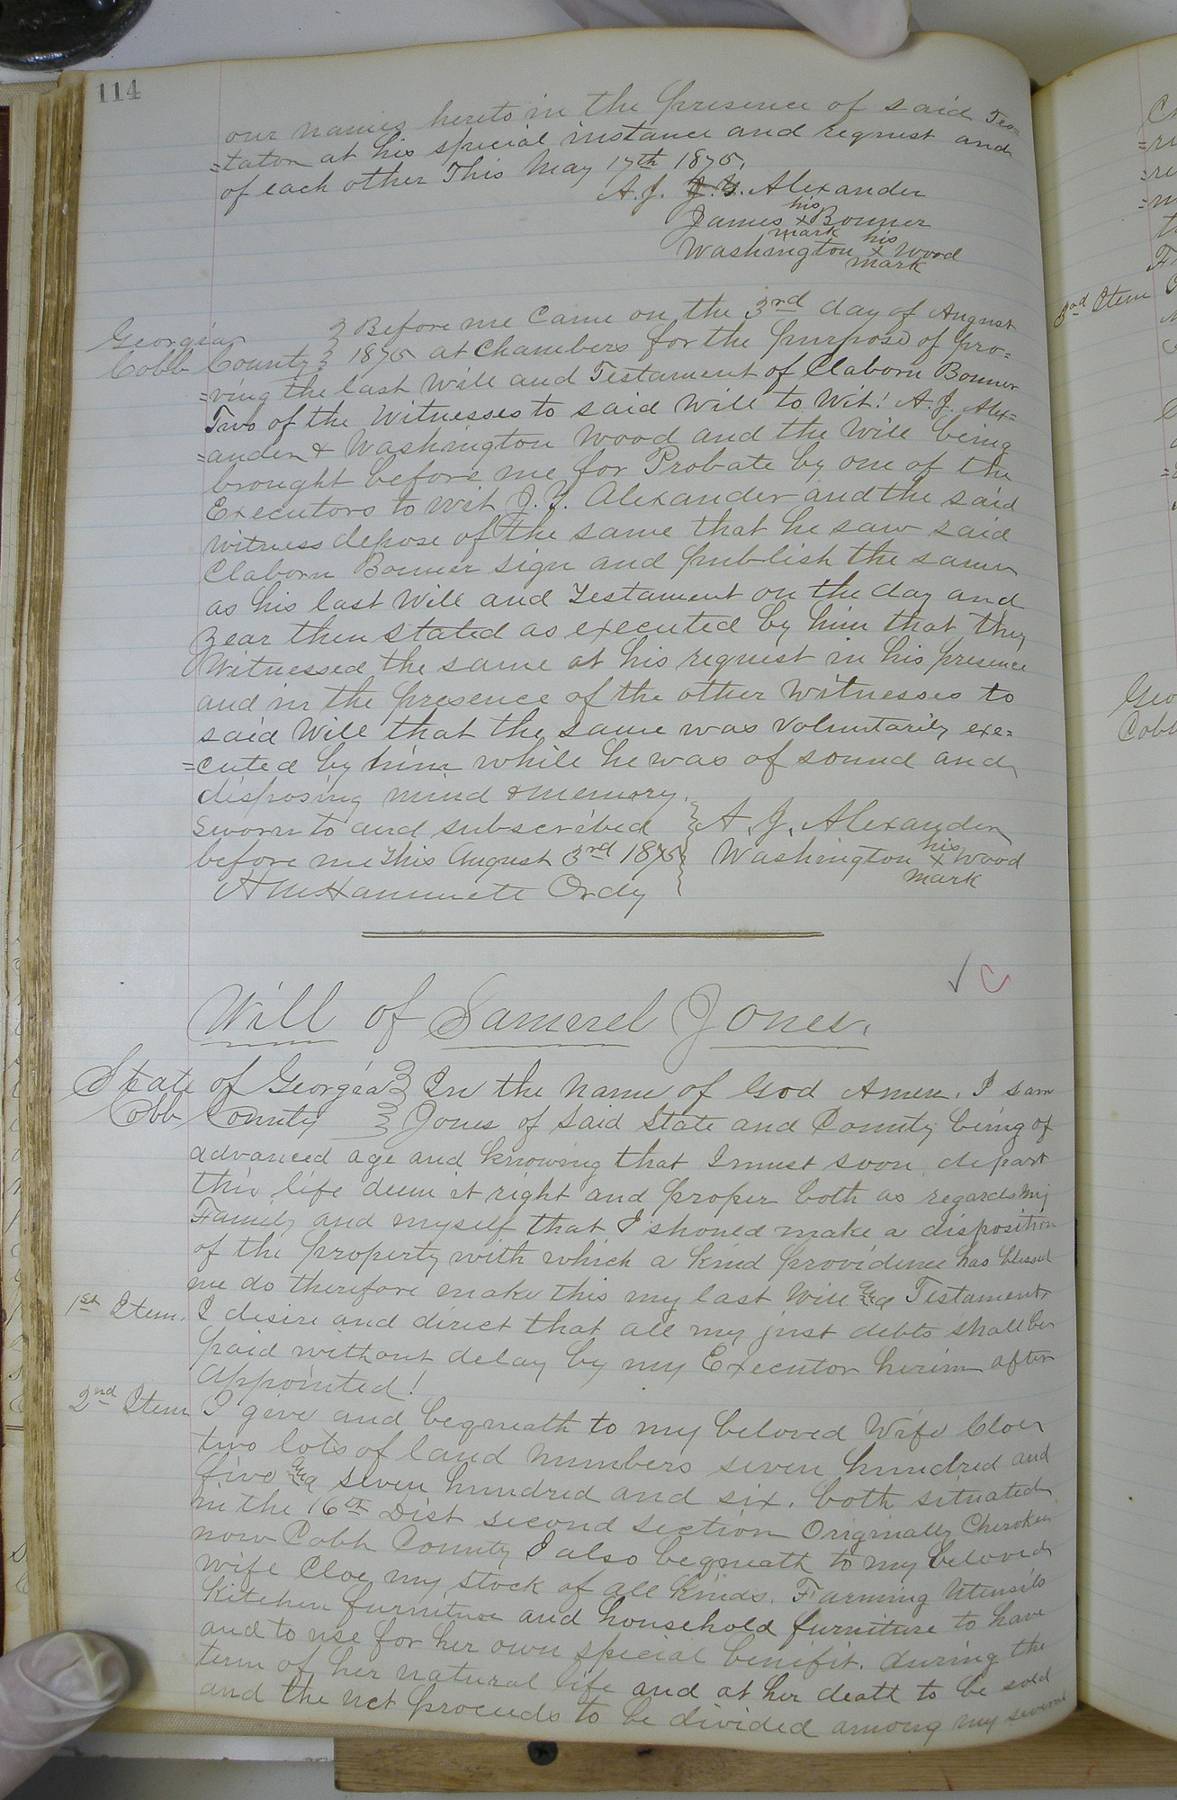 114
our names hereto in the presence of said Tes
=tator at his special instance and request and
of each other This May 17th 1875,
A. J. J. Y. Alexander
James his x mark Bonner
Washington his x mark Wood
Georgia } Before me Came on the 3rd day of August
Cobb County } 1875 at Chambers for the purpose of pro=
=ving the last Will and Testament of Claborn Bonner
Two of the Witnesses to said Will to Wit! A. J. Alex=
=ander & Washington Wood and the Will being
brought before me for Probate by one of the
Executors to wit J. Y. Alexander and the said
witness depose of the same that he saw said
Claborn Bonner sign and publish the same
as his last Will and Testament on the day and
Year then stated as executed by him that they
Witnessed the same at his request in his presence
and in the presence of the other Witnesses to
said Will that the same was Voluntarily exe=
=cuted by him while he was of sound and
disposing mind & memory.
Sworn to and subscribed } A. J. Alexander
before me This August 3rd 1875 } Washington his x mark Wood
A M Hammete Ordy
Will of Samuel Jones.
State of Georgia } In the Name of God Amen. I Sam
Cobb County } Jones of Said State and County being of
advanced age and knowing that I must soon depart
this life deem it right and proper both as regards my
Family and myself that I should make a disposition
of the property with which a kind providence has blessed
me do therefore make this my last Will and Testament
1st Item. I desire and direct that all my just debts shall be
paid without delay by my Executor herein after
appointed!
2nd Item I give and bequeath to my beloved Wife Cloe
two lots of land Numbers seven hundred and
five and seven hundred and six. both situated
in the 16th Dist second section Originally Cherokee
now Cobb County I also bequeath to my beloved
wife Cloe my stock of all kinds. Farming Utensils
Kitchen furniture and household furniture to have
and to use for her own special benifit. during the
term of her natural life and at her death to be sold
and the net proceeds to be divided among my several
3rd Item
Geo
Cobb